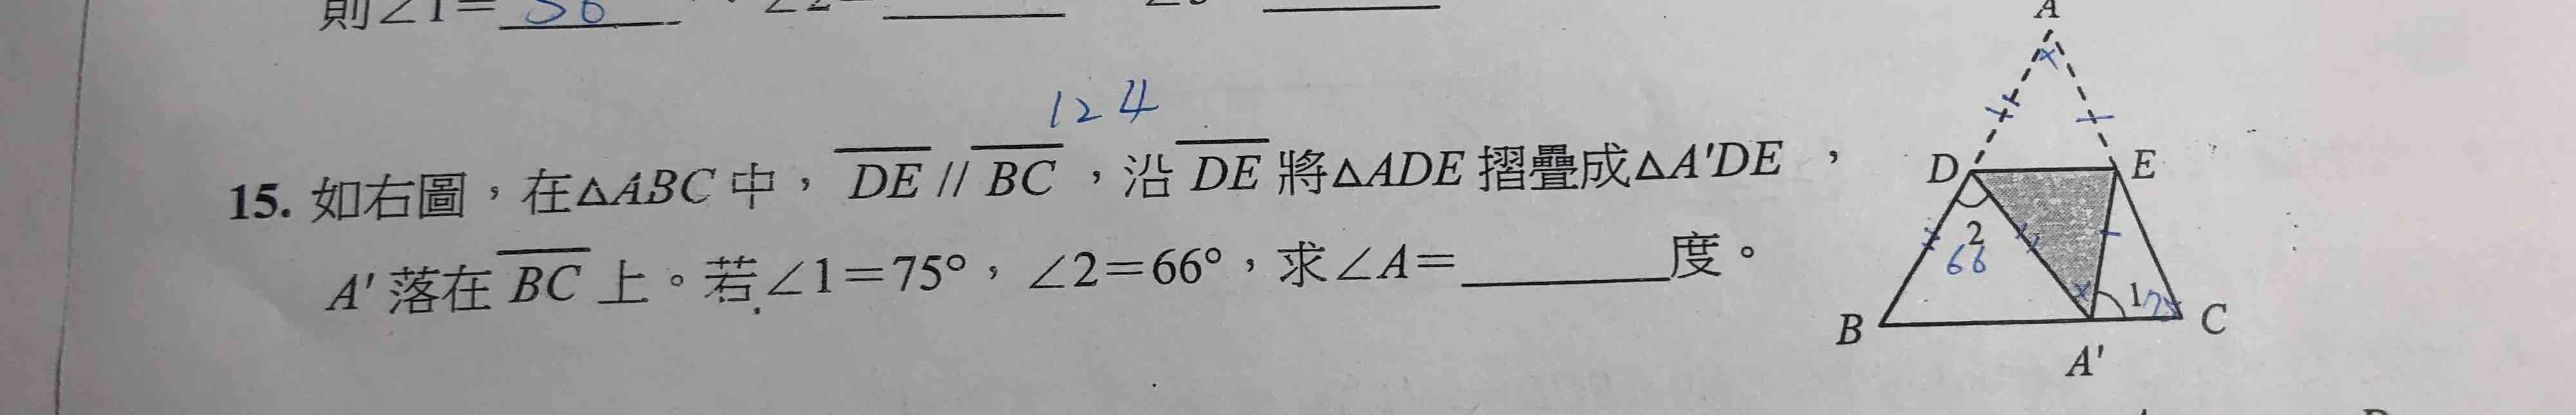 則∠1=56
124
15. 如右圖，在△ABC中，DE // BC，沿DE將△ADE摺疊成△A'DE，
A'落在BC上。若∠1=75°，∠2=66°，求∠A=________度。
A
D E
2
66
1 75
B C
A'